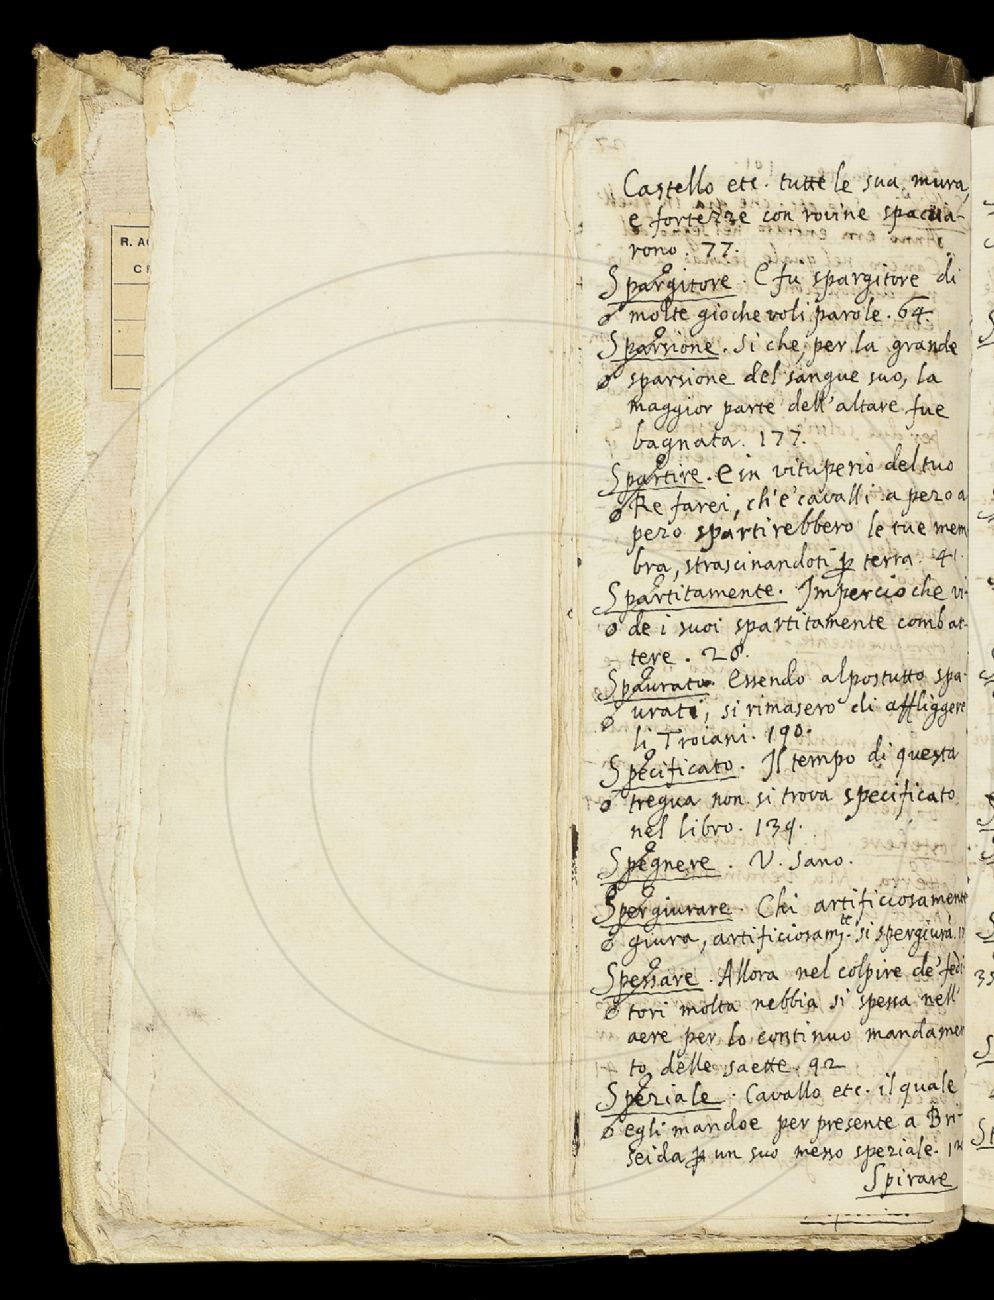 R. AC
C
Castello etc. tutte le sua mura,
e fortezze con rovine spaccia-
rono. 77.
Spargitore. E fu spargitore di
molte giochevoli parole. 64.
Sparsione. Si che, per la grande
sparsione del sangue suo, la
maggior parte dell'altare fue
bagnata. 177.
Spartire. E in vituperio del tuo
Re farei, ch'e' cavalli a pezo a
pezo spartirebbero le tue mem
bra, strascinandoti ꝑ terra. 41.
Spartitamente. Impercioche vi-
de i suoi spartitamente combat-
tere. 28.
Spaurato. Essendo al postutto spa-
urati, si rimasero di affliggere
li Troiani. 190.
Specificato. Il tempo di questa
tregua non si trova specificato
nel libro. 139.
Spegnere. V. Sano.
Spergiurare. Chi artificiosamente
giura, artificiosam.te si spergiura.
Spessare. Allora nel colpire de' fedi
tori molta nebbia si spessa nell'
aere per lo continuo mandamen
to delle saette. 92
Speziale. Cavallo etc. il quale
egli mandoe per presente a Bri-
seida ꝑ un suo messo speziale.
Spirare